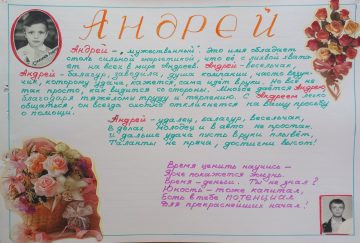 АНДРЕЙ
Андрей – „мужественный". Это имя обладает
столь сильной энергетикой, что её с лихвой хвата-
ет на всех в мире Андреев. Андрей – весельчак,
Андрей – балагур, заводила, душа компании, часто везун-
чик, которому удача, кажется, сама идёт в руки. Но всё не
так просто, как видится со стороны. Многое даётся Андрею
благодаря тяжелому труду и терпению. С Андреем легко
общаться, он всегда охотно откликнется на вашу просьбу
о помощи.
Андрей – удалец, балагур, весельчак,
В делах молодец и в авто не простак.
И дальше удача пусть в руки плывёт,
Таланты не пряча, достигни высот!
Время ценить научись –
Ярче покажется жизнь.
Время – деньги. Ты не знал?
Юность – тоже капитал,
Есть в тебе потенциал
Для прекраснейших начал!